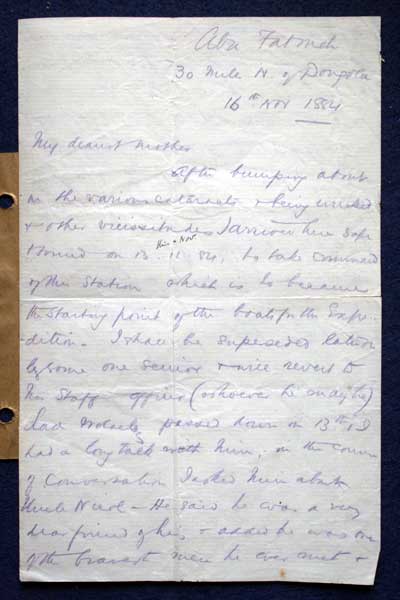 Abu Fatmeh
30 Mile N. of Dongola
16th Nov 1884
My dearest Mother
After bumping about
in the various cataracts & being wrecked
& other vicissitudes I arrived here safe
& sound on 13. 11. 84, to take command
of this Station which is to become
the starting point of the boats for the Expe-
-dition. I shall be superseded
by some one senior & revert to
his Staff officer (whoever he may be)
Lord Wolseley passed down on 13th, I
had a long talk with him, in the course
of Conversation I asked him about
Uncle - He said he was a very
dear friend of his, & added he was one
of the bravest men he ever met &